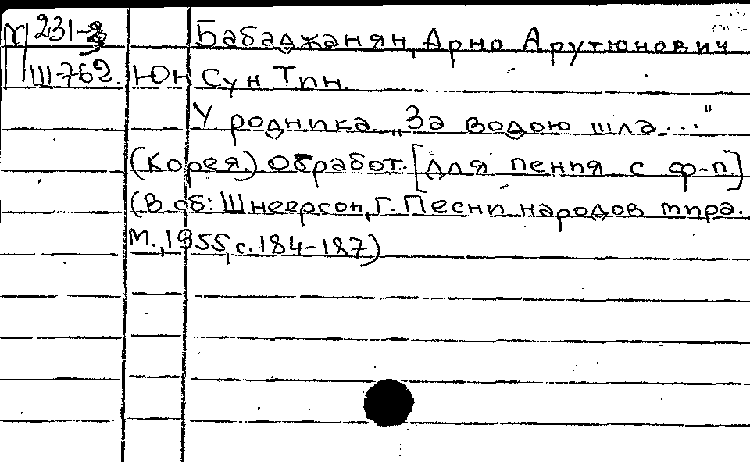 М 231-3 Бабаджанян, Арно Арутюнович
П III-762. Юн Сун Тин.
У родника „За водою шла..."
(Корея.) Обработ. [для пения с ф-п]
(В сб: Шнеерсон, Г. Песни народов мира.
М., 1955, с. 184-187)